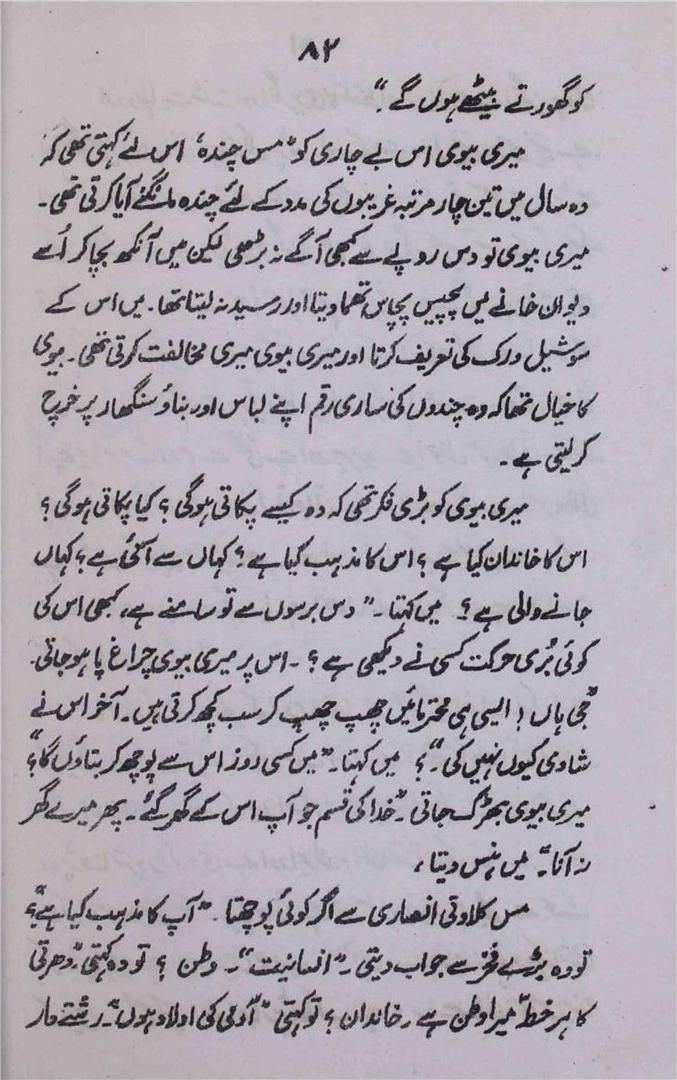 ۸۲
کو گھورتے بیٹھے ہوں گے۔"
میری بیوی اس بے چاری کو "مس چندہ" اس لئے کہتی تھی کہ
وہ سال میں تین چار مرتبہ غریبوں کی مدد کے لئے چندہ مانگنے آیا کرتی تھی۔
میری بیوی تو دس روپے سے کبھی آگے نہ بڑھی لیکن میں آنکھ بچا کر اُسے
دیوان خانے میں پچیس پچاس تھما دیتا اور رسید نہ لیتا تھا۔ میں اس کے
سوشیل ورک کی تعریف کرتا اور میری بیوی میری مخالفت کرتی تھی۔ بیوی
کا خیال تھا کہ وہ چندوں کی ساری رقم اپنے لباس اور بناؤ سنگھار پر خرچ
کر لیتی ہے۔
میری بیوی کو بڑی فکر تھی کہ وہ کیسے پکاتی ہوگی؟ کیا پکاتی ہوگی؟
اس کا خاندان کیا ہے؟ اس کا مذہب کیا ہے؟ کہاں سے آئی ہے؟ کہاں
جانے والی ہے؟ میں کہتا۔ "دس برسوں سے تو سامنے ہے، کبھی اس کی
کوئی بُری حرکت کسی نے دیکھی ہے؟۔ اس پر میری بیوی چراغ پا ہو جاتی۔
"جی ہاں! ایسی ہی محترمائیں چھپ چھپ کر سب کچھ کرتی ہیں۔ آخر اس نے
شادی کیوں نہیں کی۔"؟ میں کہتا۔ "میں کسی روز اس سے پوچھ کر بتاؤں گا"؟
میری بیوی بھڑک جاتی۔ "خدا کی قسم جو آپ اس کے گھر گئے۔ پھر میرے گھر
نہ آنا۔" میں ہنس دیتا،
مس کلاوتی انصاری سے اگر کوئی پوچھتا۔ "آپ کا مذہب کیا ہے"؟
تو وہ بڑے فخر سے جواب دیتی۔ "انسانیت"۔ وطن؟ تو وہ کہتی "دھرتی
کا ہر خطّہ میرا وطن ہے۔ خاندان؟ تو کہتی "آدمی کی اولاد ہوں"۔ رشتے دار